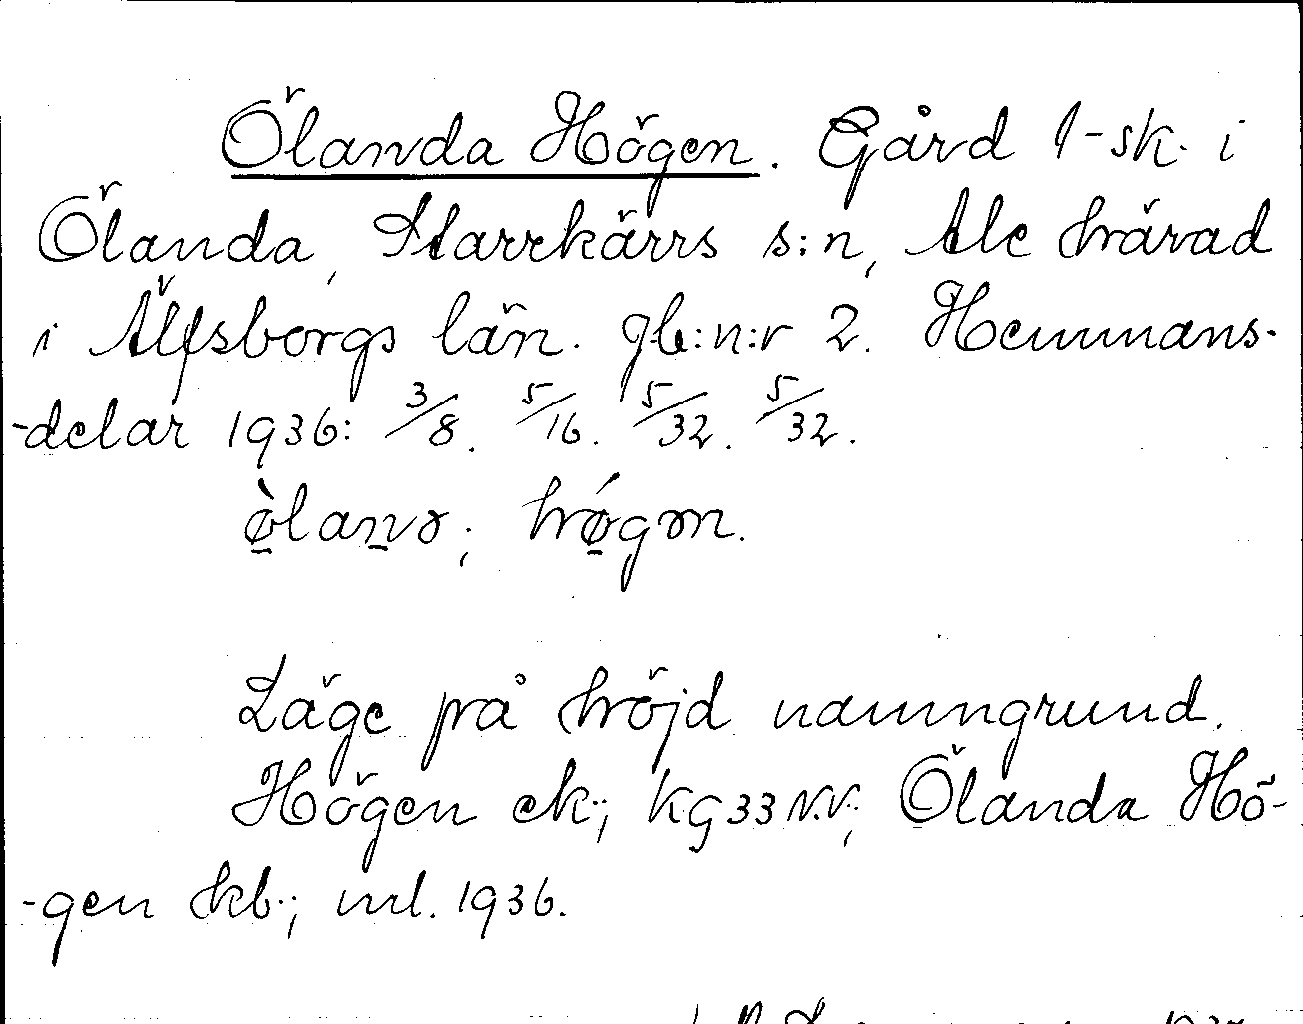 Ölanda Högen. Gård 1-sk. i
Ölanda, Starrkärrs s:n, Ale härad
i Älfsborgs län. gb:n:r 2. Hemmans-
-delar 1936: 3/8. 5/16. 5/32. 5/32.
ø̱̀lan̠ə; hǿ̱gən.
Läge på höjd namngrund.
Högen ek.; kg 33 N.V.; Ölanda Hö-
-gen skb.; ml. 1936.